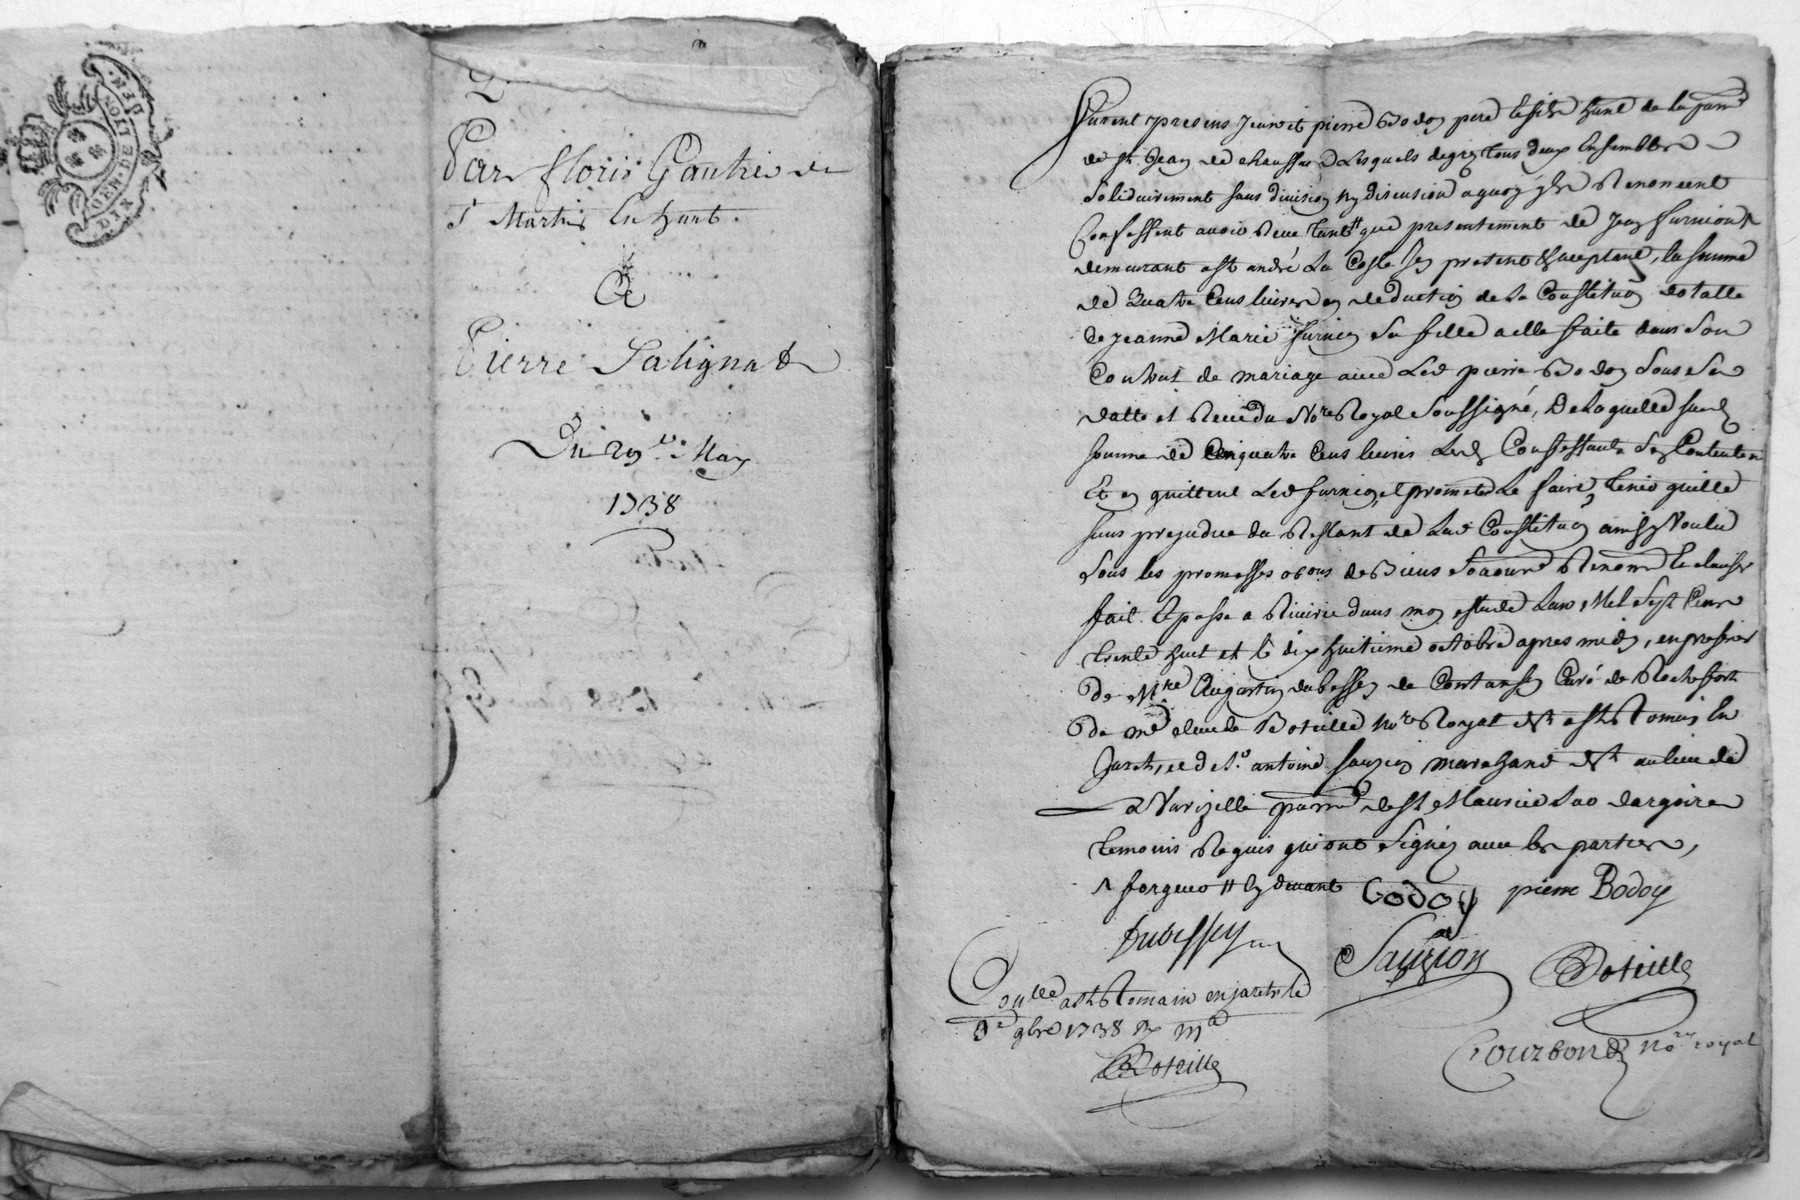 GEN. DE LION
DIX DEN.
Par floris Gautier de
St Martin En haut.
A
Pierre Salignat
Du 29e. May
1738
furent presens Jean et pierre Bodoy pere & fils hants de la parre
de st Jean de chaussan Lesquels de gré tous deux Ensemble
solidairement sans division ny discusion aquoy ils Renoncent
Confessent avoir Receu tant # que presentement de Jean furnion ^
demeurant a st andré La Coste Icy present & acceptant, la somme
de Quatre Cens livres en deduction de la Constituon dotalle
de Jeanne Marie furnion sa fille a elle faite dans son
Contrat de mariage avec Led pierre Bodoy sous sa
datte et Receu du Nore Royal soussigné, De laquelle susd
somme de quatre Cens livres Lesd Confessants se Contentent
Et en quittent Led furnion, et promettent Le faire tenir quitte
sans prejudice du Restant de Lad Constituon ainsy Voulu
sous les promesses obons de Biens Renonn & clauses
fait & passé a Riverie dans mon estude Lan Mil Sept Cens
trente huit et le dix huitieme octobre apres midy, en presence
de Mre Augustin dubessey de Contanson Curé de Rochefort
De me claude Boteille nore Royal dt a st Romain En
Jarets, et de sr. antoine sauzion marchand dt au lieu de
La Varizelle parre de st Maurice sur dargoire
temoins Requis qui ont signé avec les parties,
^ forgeur # Cy devant
Bodoy pierre Bodoy
Dubessey
Sauzion Boteille
Conllé a st Romain en jarets le
3e 9bre 1738 R
Boteille
Courbon nore royal